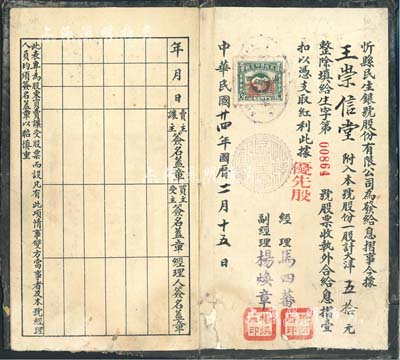 忻縣民生銀號股份有限公司為發給息摺事今據
王崇信堂 附入本號股份一股計大洋 五拾元
整除填給生字第 00864 號股票收執外合給息摺壹
扣以憑支取紅利此據
優先股
經理 馬四蕃
副經理 楊煥章
中華民國廿四年國曆二月十五日
年月日
賣主讓主簽名蓋章
買主受主簽名蓋章
經理人簽名蓋章
此表專為股東買賣讓受股票而設凡有此項情事雙方當事者及本號經理
人員均須簽名蓋章以昭慎重